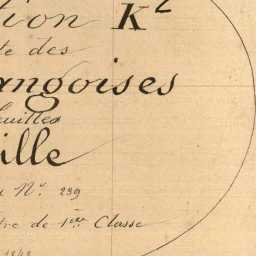 tion K²
te des
angoises
feuilles
ille
N° 239
tre de 1ère Classe
1848